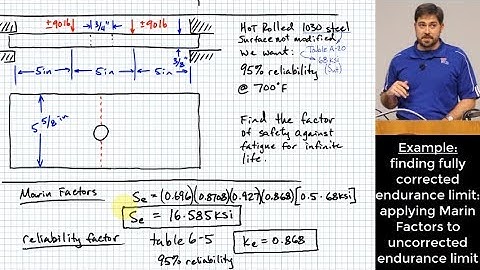 ±90lb
3/4"
±90lb
3/8"
5in
5in
5in
5 5/8 in
Hot Rolled 1030 steel
Surface not modified
We want:
Table A-20
68 ksi
(Sut)
95% reliability
@ 700°F
Find the factor
of safety against
fatigue for infinite
life.
Marin Factors
Se = (0.696)(0.8708)(0.927)(0.868)[0.5·68ksi]
Se = 16.585ksi
reliability factor
table 6-5
Ke = 0.868
95% reliability
Example:
finding fully
corrected
endurance limit:
applying Marin
Factors to
uncorrected
endurance limit